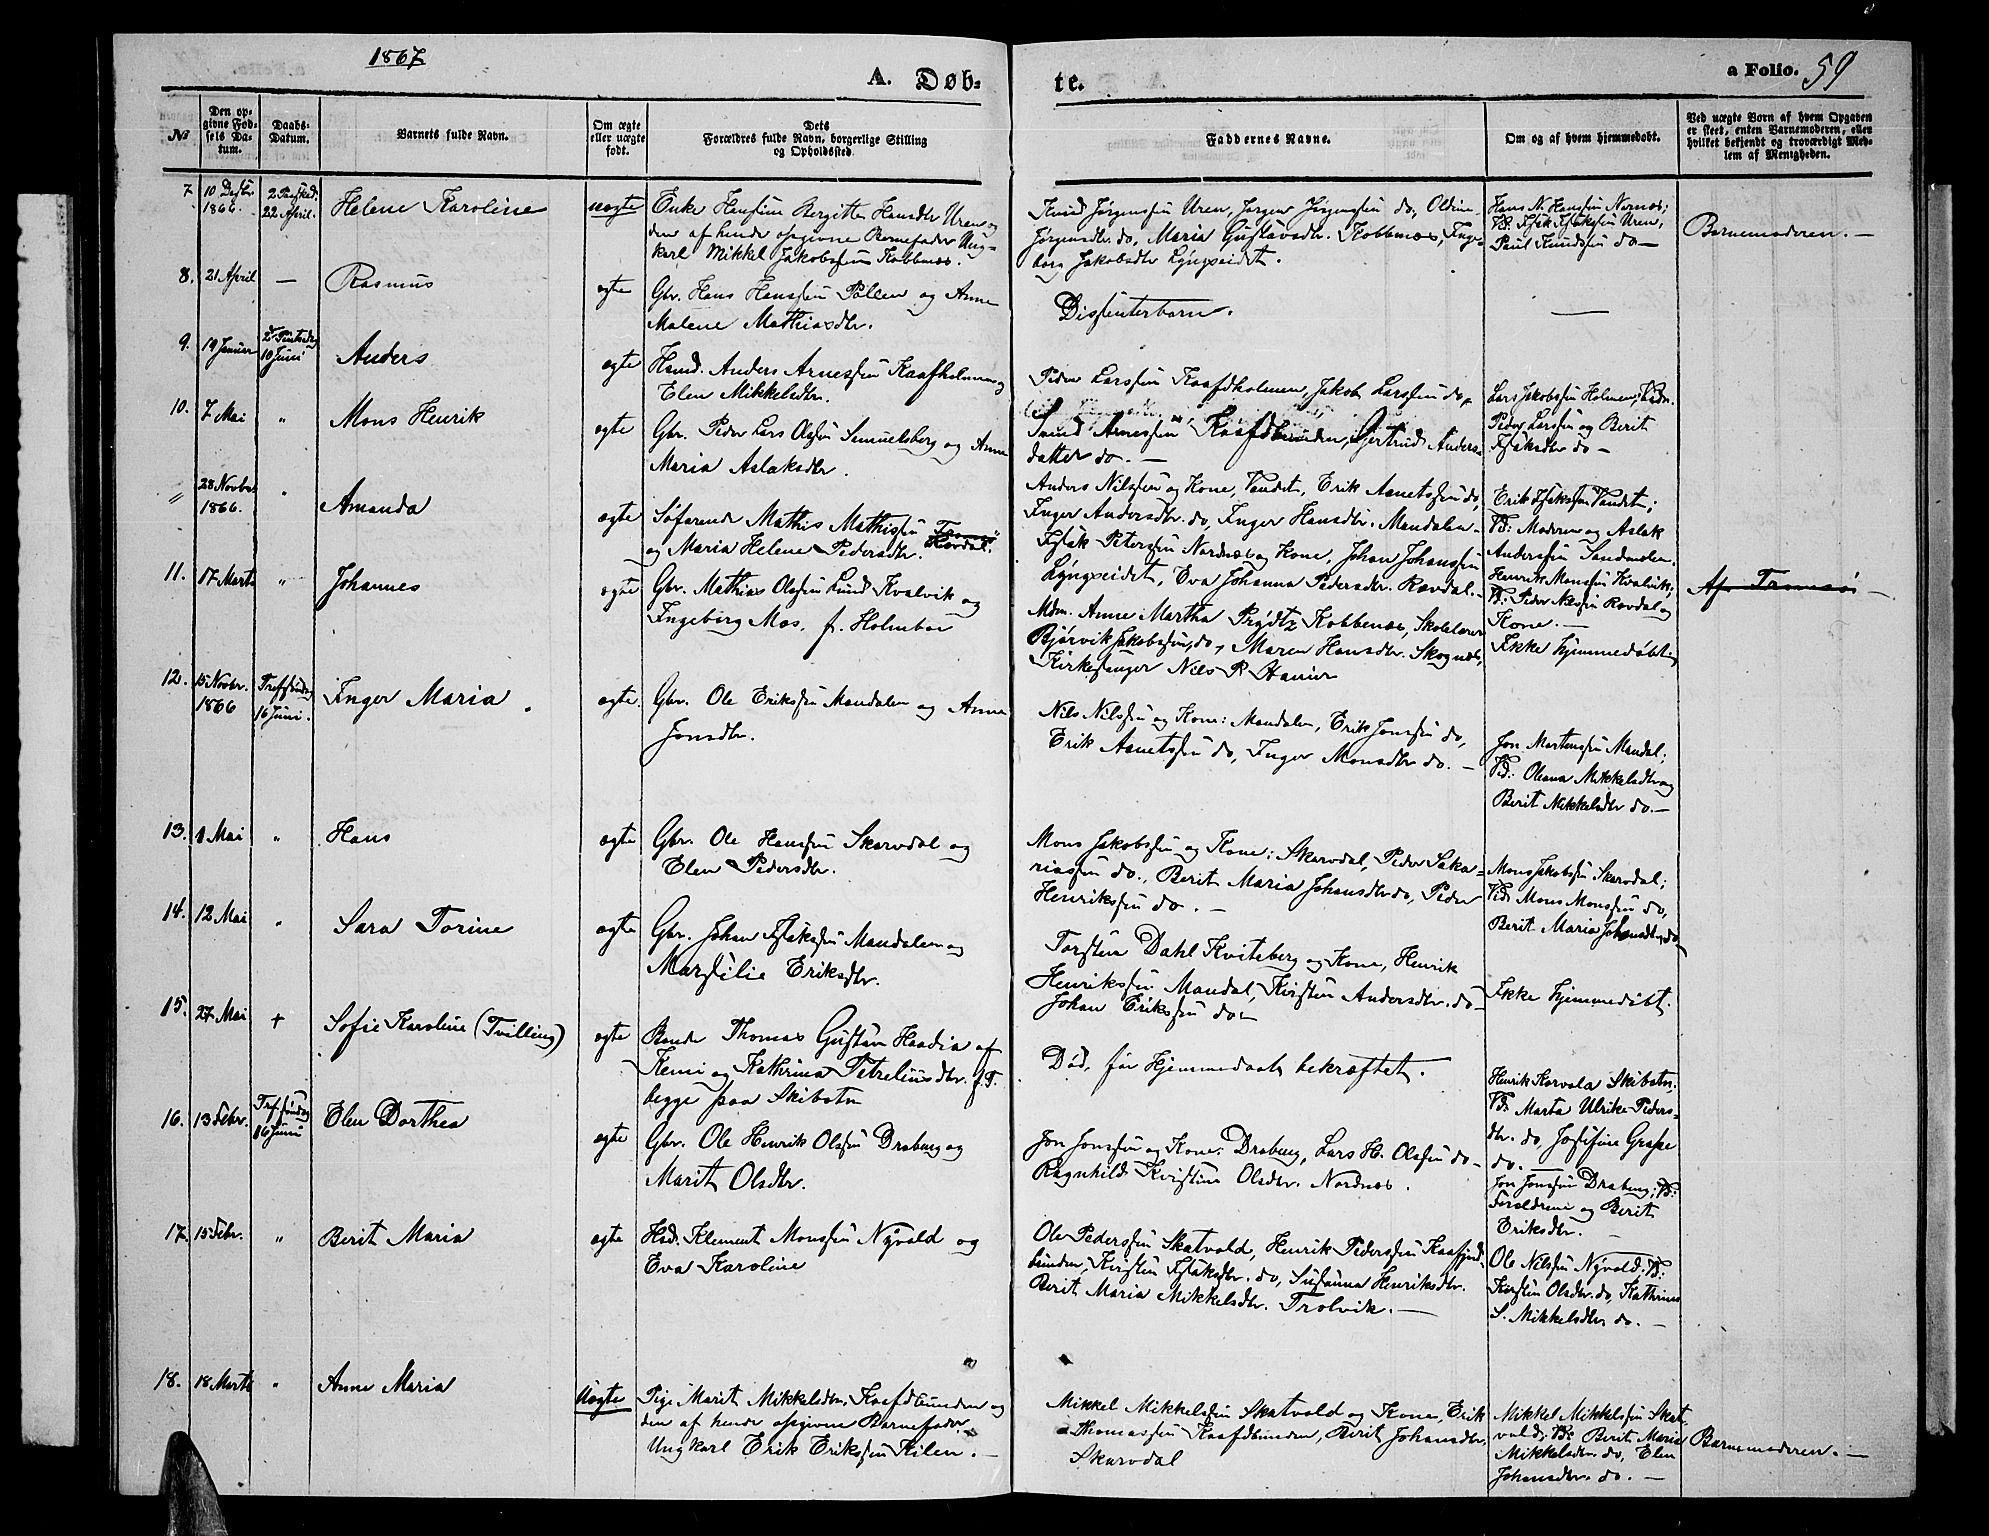 1867
A. Døb-
te.
a Folio. 59
No
Den op-
givne Fød-
sels Da-
tum.
Daabs-
Datum.
Barnets fulde Navn.
Om ægte
eller uægte
født.
Dets
Forældres fulde Navn, borgerlige Stilling
og Opholdssted.
Faddernes Navne.
Om og af hvem hjemmedøbt.
Ved uægte Børn af hvem Opgaven
er skeet, enten Barnemoderen, eller
hvilket bekjendt og troværdigt Med-
lem af Menigheden.
7. 10 Decbr 1866. 22 April. Helene Karoline uægte
Enke Hansine Bergitte Hansdtr Uren og
den af hende opgivne Barnefader Ung-
karl Mikkel Jakobssen Kobbenæs.
Knud Jørgenssen Uren, Jørgen Jørgenssen do, Oldine
Jørgensdtr do, Maria Gustavsdtr. Kobbenæs, Inge-
borg Jakobsdtr Lyngseidet.
Hans N. Hanssen Nornæs;
Vd: Isak Isakssen Uren,
Paul Knudssen do —
Barnemoderen. —
8. 21 April — Rasmus ægte
Gbr. Hans Hanssen Pollen og Anne
Malene Mathiasdtr.
Dissenterbarn.
—
9. 19 Januar 10 Juni Anders ægte
Hmd. Anders Arnessen Kaafholmen og
Elen Mikkelsdtr.
Peder Larssen Kaafdholmen, Jakob Larssen do,
Svend Arnessen Kaafdbunden, Gertrud Anders-
datter do. —
Lars Jakobssen Holmen;
Peder Larssen og Berit
Isaksdtr do —
10. 7 Mai " Mons Henrik ægte
Gbr. Peder Lars Olssen Samuelsberg og Anne
Maria Aslaksdtr.
Anders Nilssen og Kone, Vandet, Erik Amutssen do,
Inger Andersdtr. do, Inger Hansdtr. Mandalen. —
Erik Isakssen Vandet;
Vd: Moderen og Aslak
Anderssen Sandmelen.
" 28 Novbr 1866. " Amanda ægte
Søfarende Mathis Mathissen Tromsø
og Maria Helene Pedersdtr. Rovdal.
Isak Peterssen Nordnæs og Kone, Johan Johanssen
Lyngseidet, Eva Johanna Pedersdtr. Rovdal. —
Henrik Monssen Kvalvik;
Vd: Peder Nilssen Rovdal og
Kone. —
Af Tromsø —
11. 17 Marts " Johannes ægte
Gbr. Mathias Olssen Lund Kvalvik og
Ingeborg Mos. f. Holmboe
Mdm. Anne Martha Prydtz Kobbenæs, Skolelærer
Bjørvik Jakobssen, do, Maren Hansdtr. Skognæs,
Kirkesanger Nils P. Hanier
Ikke hjemmedøbt
12. 15 Novbr. 1866 16 Juni. Inger Maria ægte.
Gbr. Ole Erikssen Mandalen og Anne
Jonsdtr.
Nils Nilssen og Kone: Mandalen, Erik Jonssen do,
Erik Amutssen do, Inger Monsdtr do. —
Jon Mortenssen Mandal;
Vd: Oleana Mikkelsdtr og
Berit Mikkelsdtr do. —
13. 1 Mai " Hans ægte
Gbr. Ole Hanssen Skarvdal og
Elen Pedersdtr.
Mons Jakobssen og Kone: Skarvdal, Peder Saka-
riassen do., Berit Maria Johansdtr do, Peder
Henrikssen do. —
Mons Jakobssen Skarvdal;
Vd: Mons Monssen do,
Berit Maria Johansdtr do —
14. 12 Mai " Sara Torine ægte
Gbr. Johan Isakssen Mandalen og
Marsilie Eriksdtr.
Torsten Dahl Kviteberg og Kone, Henrik
Henrikssen Mandal, Kirsten Andersdtr. do —
Johan Erikssen do —
Ikke hjemmedøbt.
15. 27 Mai + Sofie Karoline (Tvilling) ægte
Bonde Thomas Gustav Haadia af
Kemi og Kathrina Petreliusdtr. f. T.
begge paa Skibotn
Død, før Hjemmedaab bekræftet.
Henrik Korvola Skibotn,
Vd: Marta Ulrike Peders-
dtr. do, Josefine Grape
do. —
16. 13 Febr. 16 Juni Elen Dorthea ægte
Gbr. Ole Henrik Olssen Draberg og
Marit Olsdtr.
Jon Jonssen og Kone: Draberg, Lars H. Olssen do —
Ragnhild Kirstine Olsdtr. Nordnæs.
Jon Jonssen Draberg; Vd:
Forældrene og Berit
Eriksdtr. —
17. 15 Febr. " Berit Maria ægte
Hsd. Klement Monssen Nyvold og
Eva Karoline
Ole Pederssen Skatvold, Henrik Pederssen Kaafjord-
bunden, Kirsten Isaksdtr. do, Susanna Henriksdtr.
Berit Maria Mikkelsdtr. Trolvik. —
Ole Nilssen Nyvold. Vd:
Kirsten Olsdtr. do, Kathrine
S. Mikkelsdtr do. —
18. 18 Marts " Anne Maria Uægte
Pige Marit Mikkelsdtr. Kaafdbunden og
den af hende opgivne Barnefader,
Ungkarl Erik Erikssen Kilen. —
Mikkel Mikkelssen Skatvold og Kone, Erik
Thomassen Kaafdbunden, Berit Johansdtr,
Skarvdal
Mikkel Mikkelssen Skat-
vold; Vd: Berit Maria
Mikkelsdtr. do, Elen
Johansdtr. do. —
Barnemoderen. —